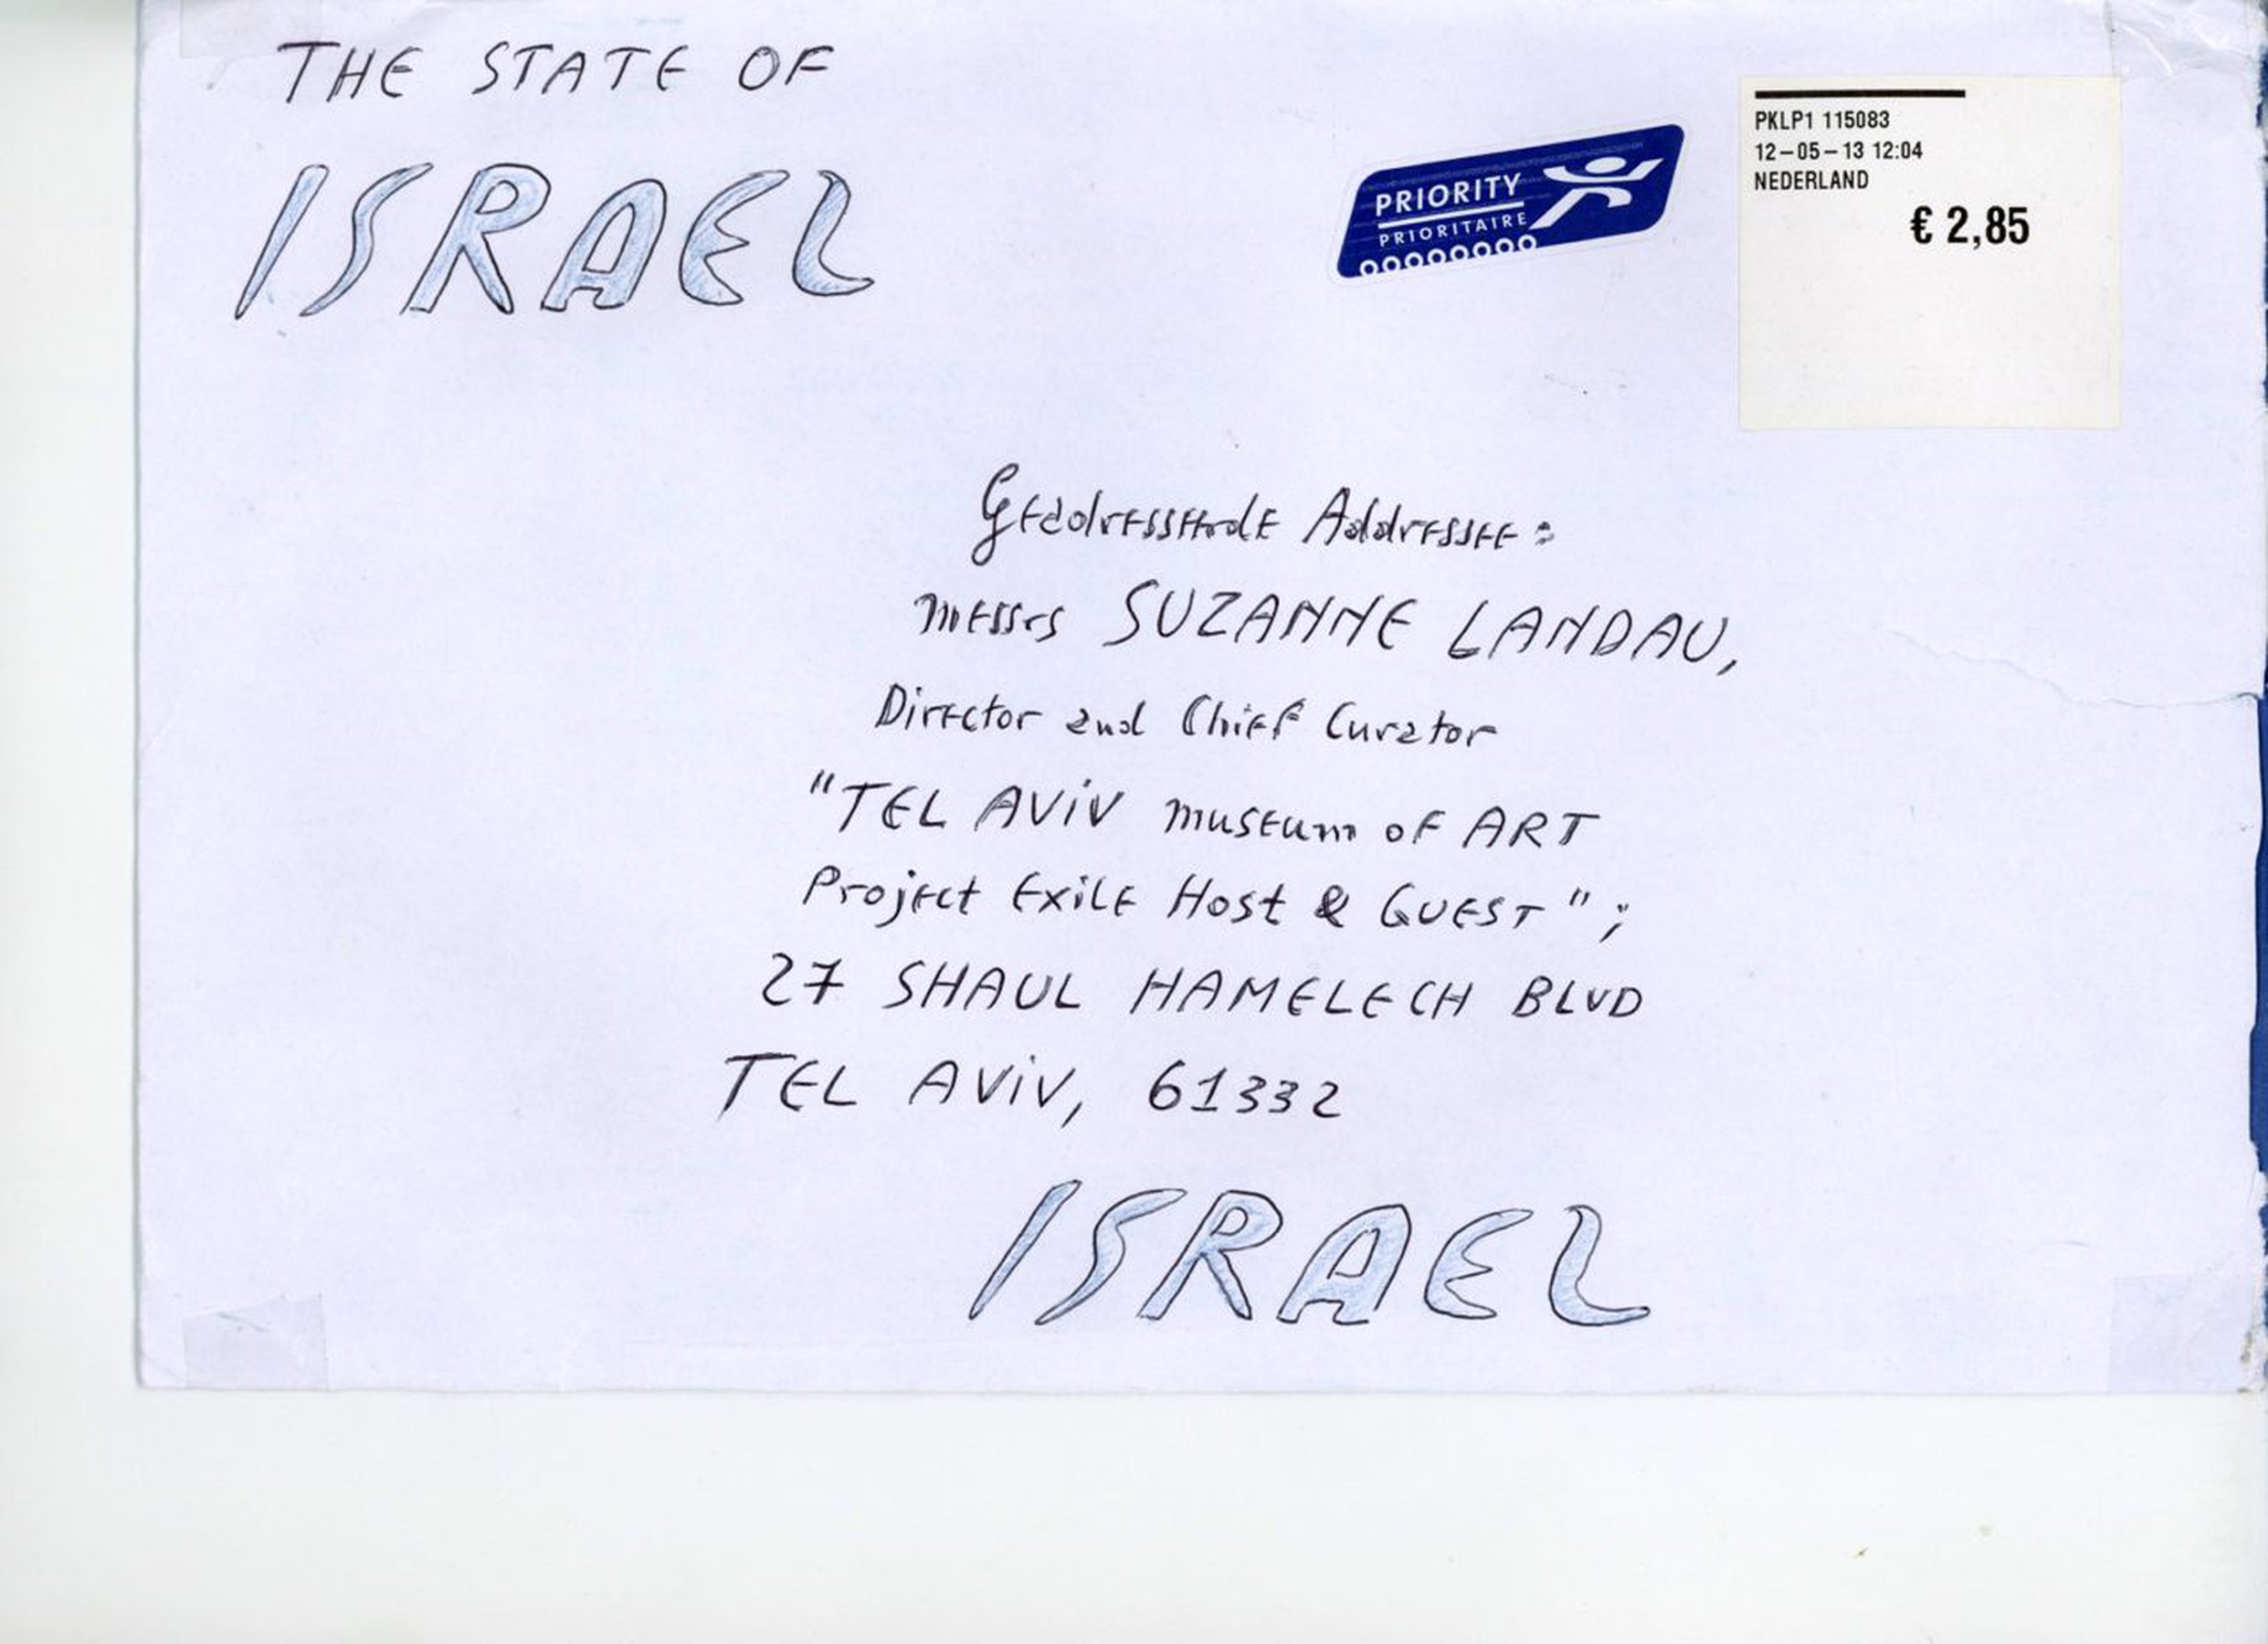 THE STATE OF
ISRAEL
PRIORITY
PRIORITAIRE
PKLP1 115083
12-05-13 12:04
NEDERLAND
€ 2,85
Geadresseerde Addressee:
messrs SUZANNE LANDAU,
Director and Chief Curator
"TEL AViV museum oF ART
Project Exile Host & GUEST";
27 SHAUL HAMELECH BLVD
TEL AViV, 61332
ISRAEL